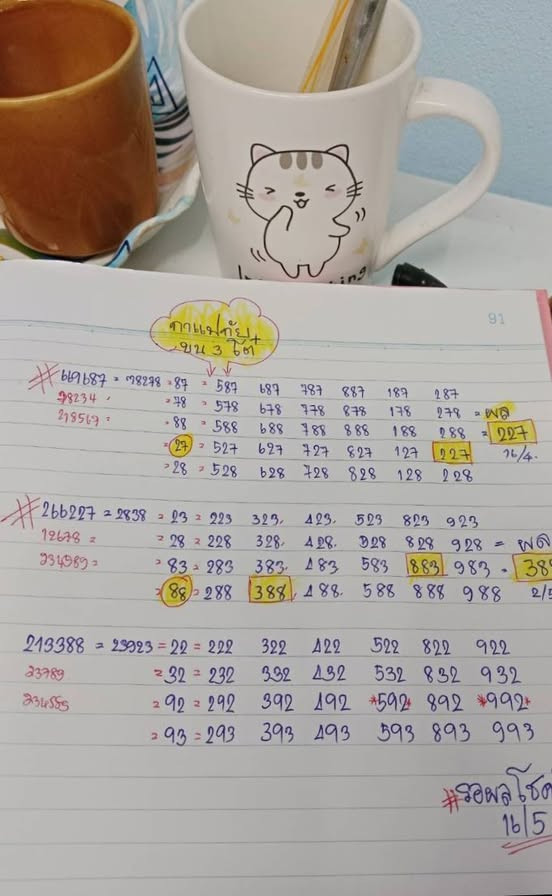 91
กาแฟภัย
บน 3 โต๊
# 669687 = 78278 = 87 = 587 687 787 887 187 287
78234 = 78 = 578 678 778 878 178 278 = ผล
278567 = 88 = 588 688 788 888 188 288 = 227
= 27 = 527 627 727 827 127 227 16/4.
= 28 = 528 628 728 828 128 228
# 266227 = 2838 = 23 = 223 323. 423. 523 823 923
12678 = = 28 = 228 328. 428. 528 828 928 = ผล
234589 = = 83 = 283 383. 483 583 883 983 = 388
= 88 = 288 388 488. 588 888 988 2/5
213388 = 23923 = 22 = 222 322 422 522 822 922
23789 = 32 = 232 332 432 532 832 932
= 92 = 292 392 492 *592* 892 *992*
= 93 = 293 393 493 593 893 993
# รอผลโชค
16/5